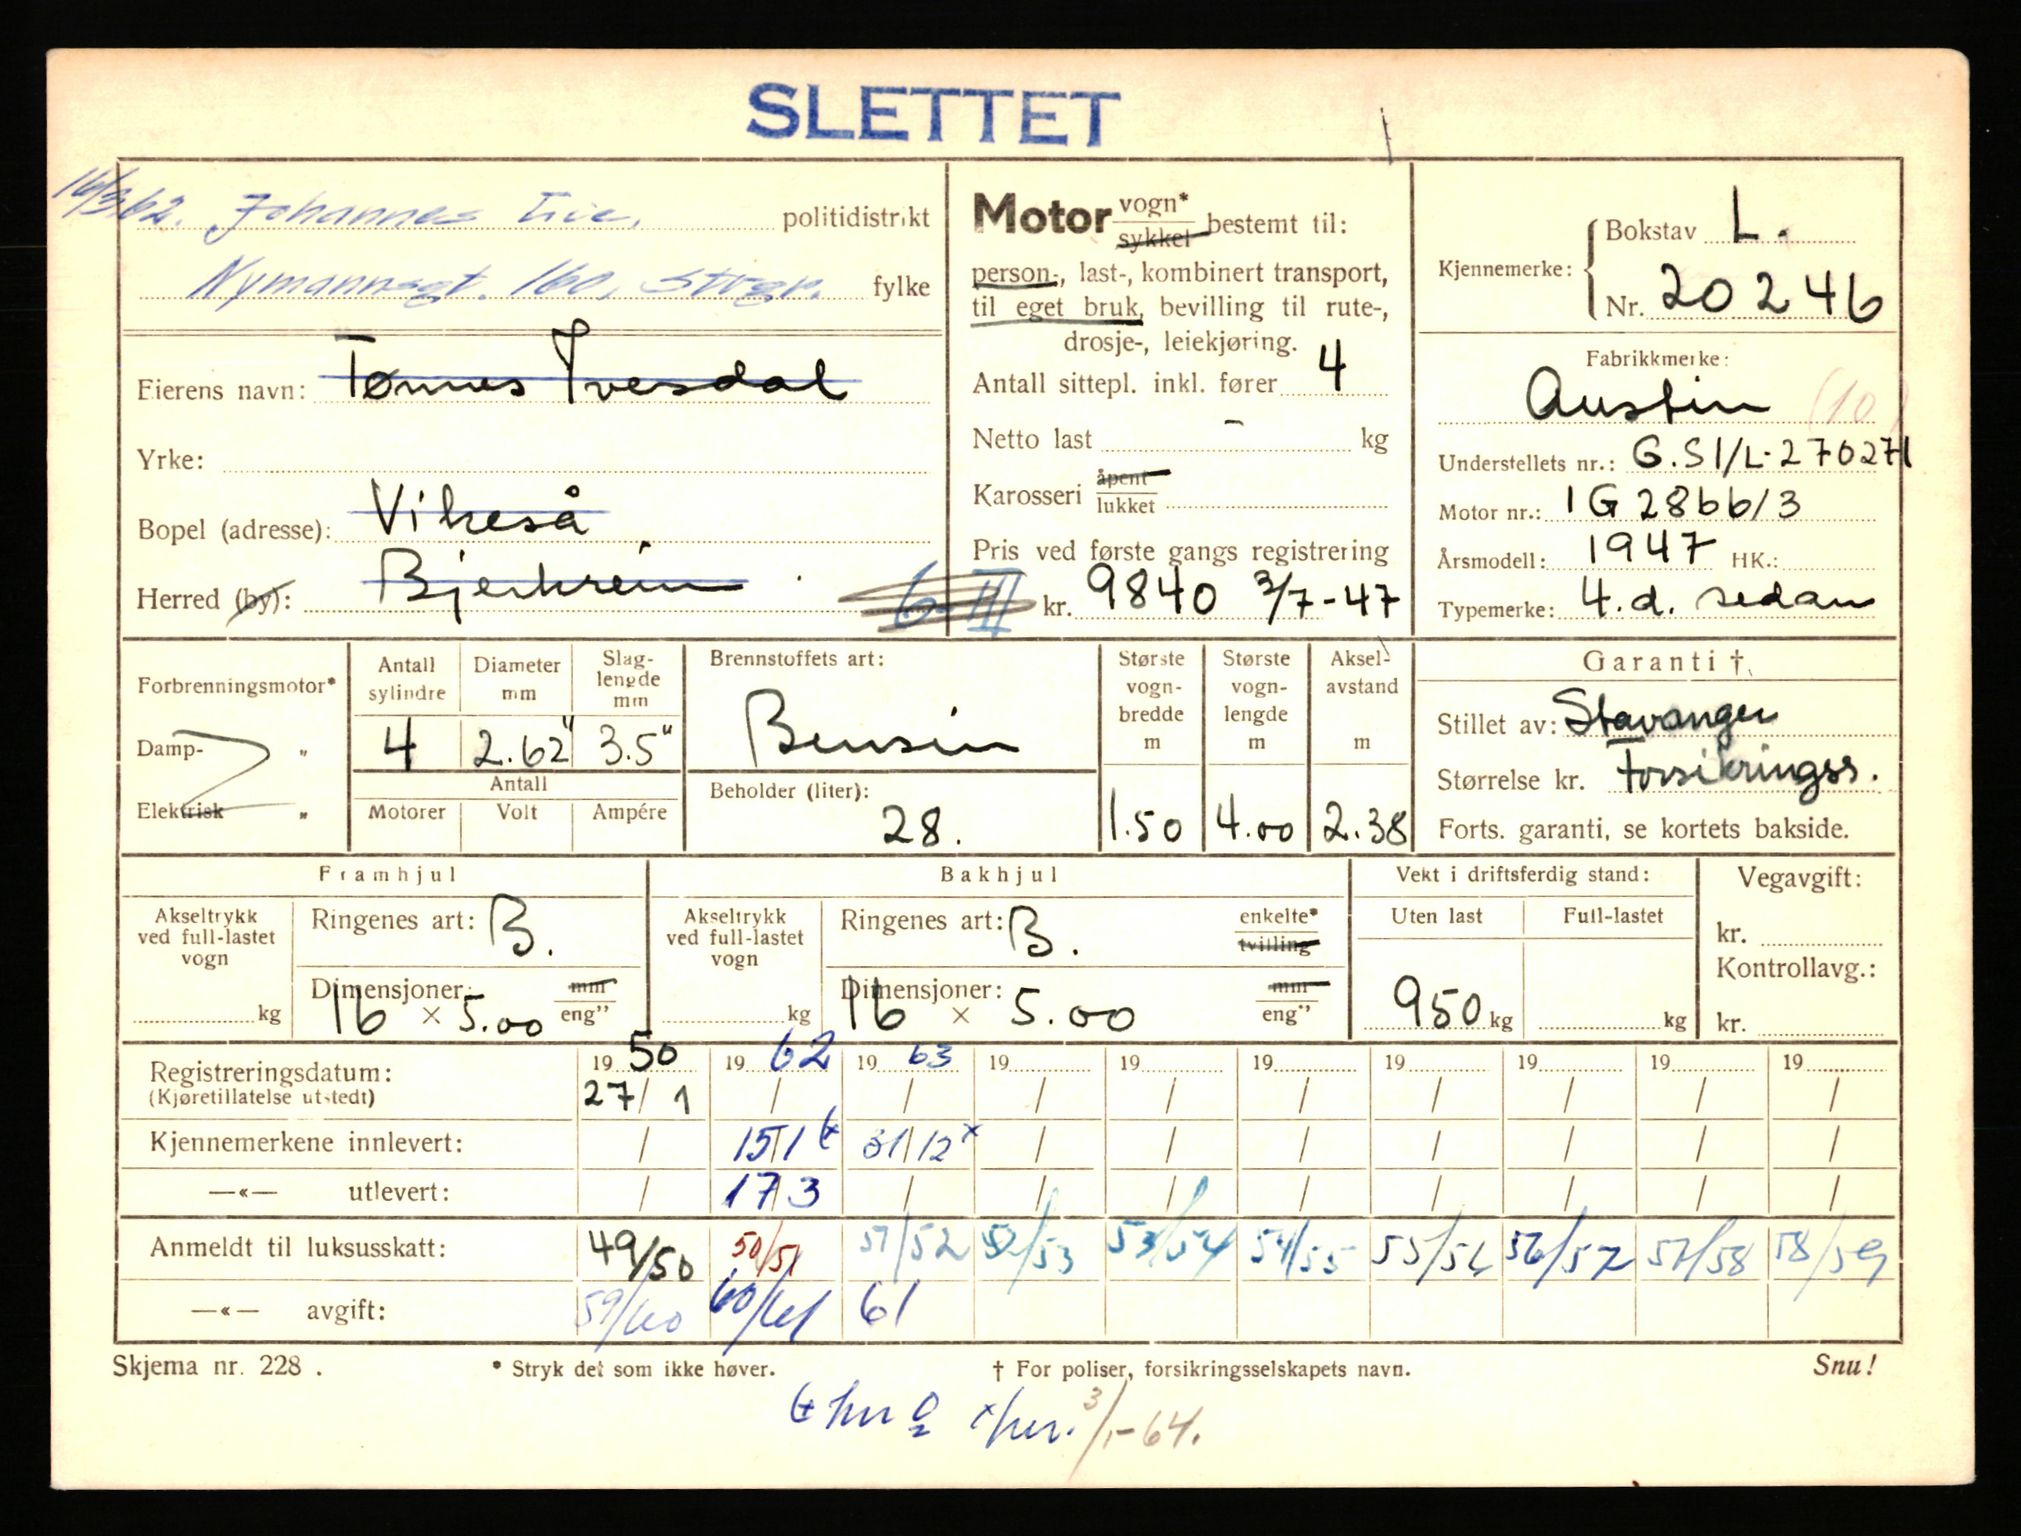 SLETTET
16/3.62. Johannes politidistrikt
Nymannsgt. 160, Stvgr. fylke
Eierens navn: Tønnes Ivesdal
Yrke:
Bopel (adresse): Vikeså
Herred (by): Bjerkreim
6-III
Motor vogn* sykkel bestemt til:
person-, last-, kombinert transport,
til eget bruk, bevilling til rute-,
drosje-, leiekjøring.
Antall sittepl. inkl. fører 4
Netto last - kg
Karosseri åpent lukket
Pris ved første gangs registrering
kr. 9840 3/7-47
Kjennemerke: Bokstav L.
Nr. 20246
Fabrikkmerke:
Austin (10)
Understellets nr.: G.S1/L-270271
Motor nr.: 1G2866/3
Årsmodell: 1947 HK.:
Typemerke: 4.d. sedan
Forbrenningsmotor*
Damp- "
Elektrisk "
Antall sylindre
Diameter mm
Slag-lengde mm
4 2.62" 3.5"
Antall
Motorer Volt Ampére
Brennstoffets art:
Bensin
Beholder (liter):
28.
Største vogn-bredde m
1.50
Største vogn-lengde m
4.00
Aksel-avstand m
2.38
Garanti †
Stillet av: Stavanger
Størrelse kr. Forsikringss.
Forts. garanti, se kortets bakside.
Framhjul
Akseltrykk ved full-lastet vogn
kg
Ringenes art: B.
Dimensjoner: mm
16 × 5.00 eng"
Bakhjul
Akseltrykk ved full-lastet vogn
kg
Ringenes art: B. enkelte* tvilling
Dimensjoner: mm
16 × 5.00 eng"
Vekt i driftsferdig stand:
Uten last Full-lastet
950 kg kg
Vegavgift:
kr.
Kontrollavg.:
kr.
Registreringsdatum: 1950 1962 1963 19 19 19 19 19 19 19
(Kjøretillatelse utstedt) 27/1 / / / / / / / / /
Kjennemerkene innlevert: / 15/1 31/12 x / / / / / / /
—«— utlevert: / 17/3 / / / / / / / /
Anmeldt til luksusskatt: 49/50 50/51 51/52 52/53 53/54 54/55 55/56 56/57 57/58 58/59
—«— avgift: 59/60 60/61 61
Skjema nr. 228.
* Stryk det som ikke høver.
† For poliser, forsikringsselskapets navn.
Snu!
3/1-64.